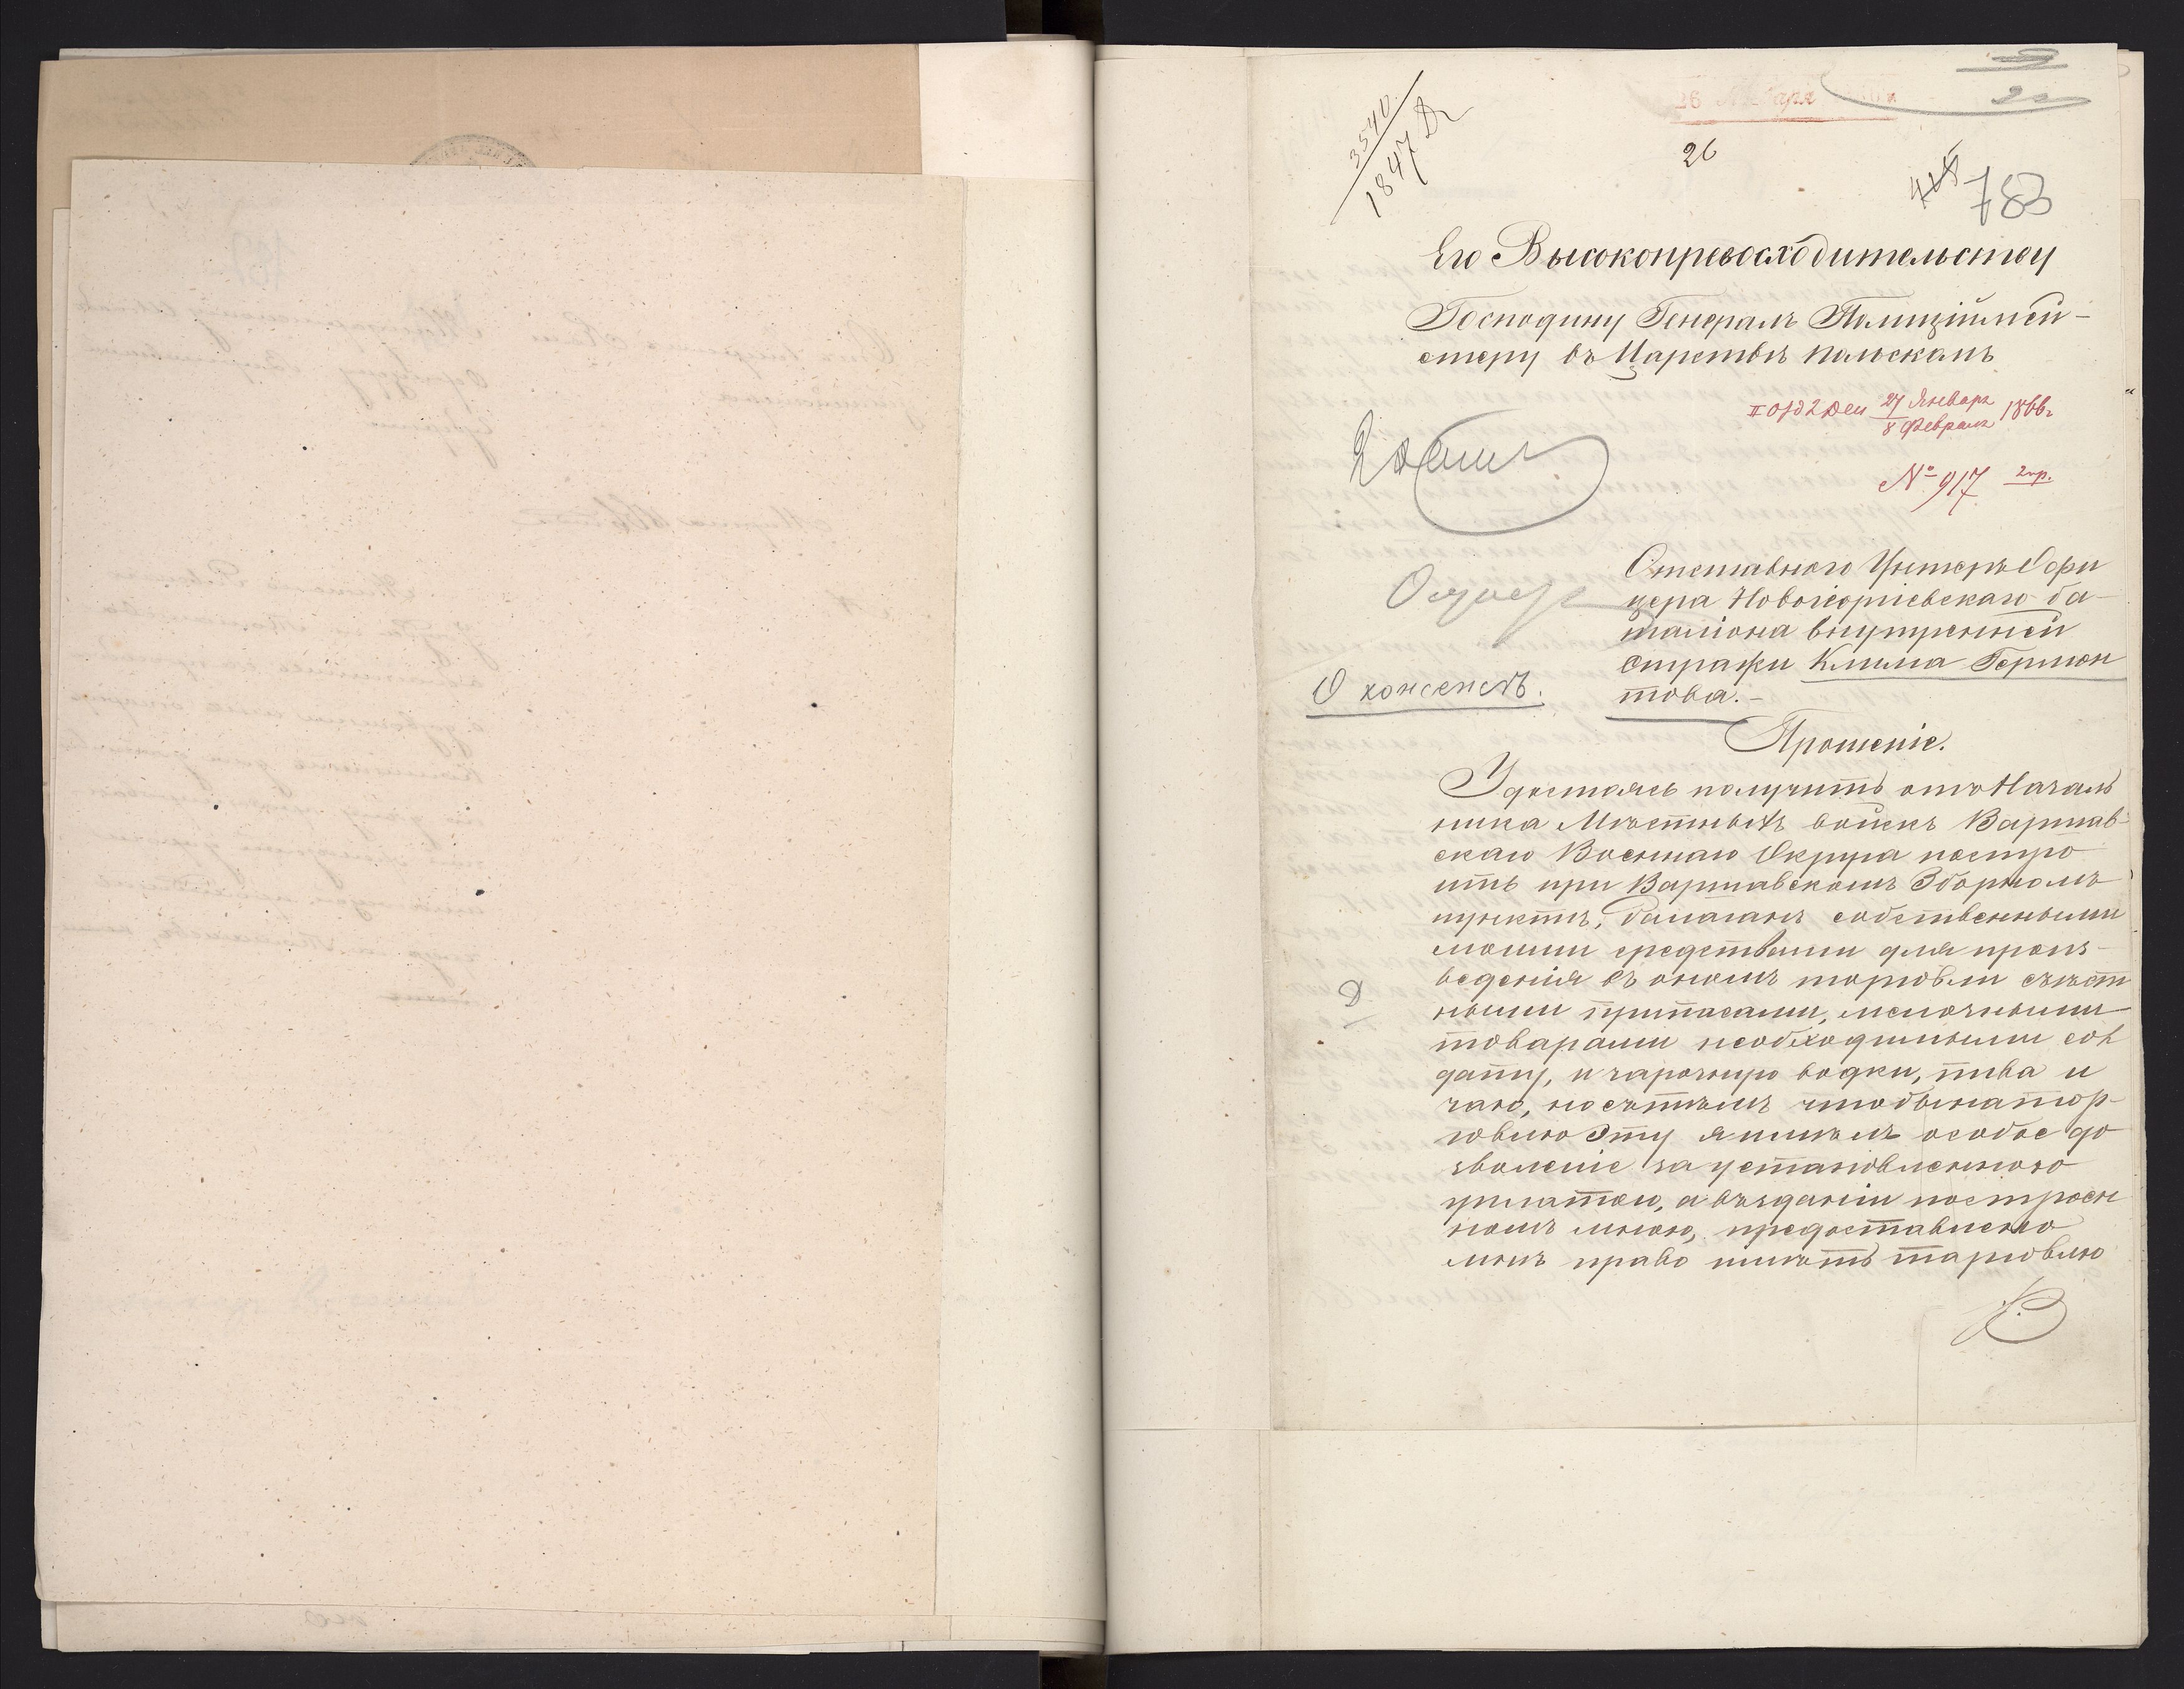 3540.
1847
26 Января
26
783
Его Высокопревосходительству
Господину Генералъ Полиціймей-
стеру въ Царствѣ Польскомъ
II отд 2 Дел 27 Января / 8 Февраля 1866г
№ 917 2 пр.
Отставнаго Унтеръ Офи
цера Новогеоргіевскаго ба-
таліона внутренней
Стражи Клима Гермон
това.-
О консенсѣ.
Прошеніе.
Удостоясь получить отъ Началь
ника Мѣстныхъ войскъ Варшав-
скаго Военнаго Округа постро
ить при Варшавскомъ Зборномъ
пунктѣ, балаганъ собственными
моими средствами для произ-
веденія въ ономъ торговли съѣст
ными припасами, мелочными
товарами необходимыми сол
дату, и чарочную водки, пива и
чаю, но съ тѣмъ чтобы на тор-
говлю эту я имѣлъ особое до
зволеніе за установленною
уплатою, а въ зданіи построен
номъ мною, предоставлено
мнѣ право имѣть торговлю